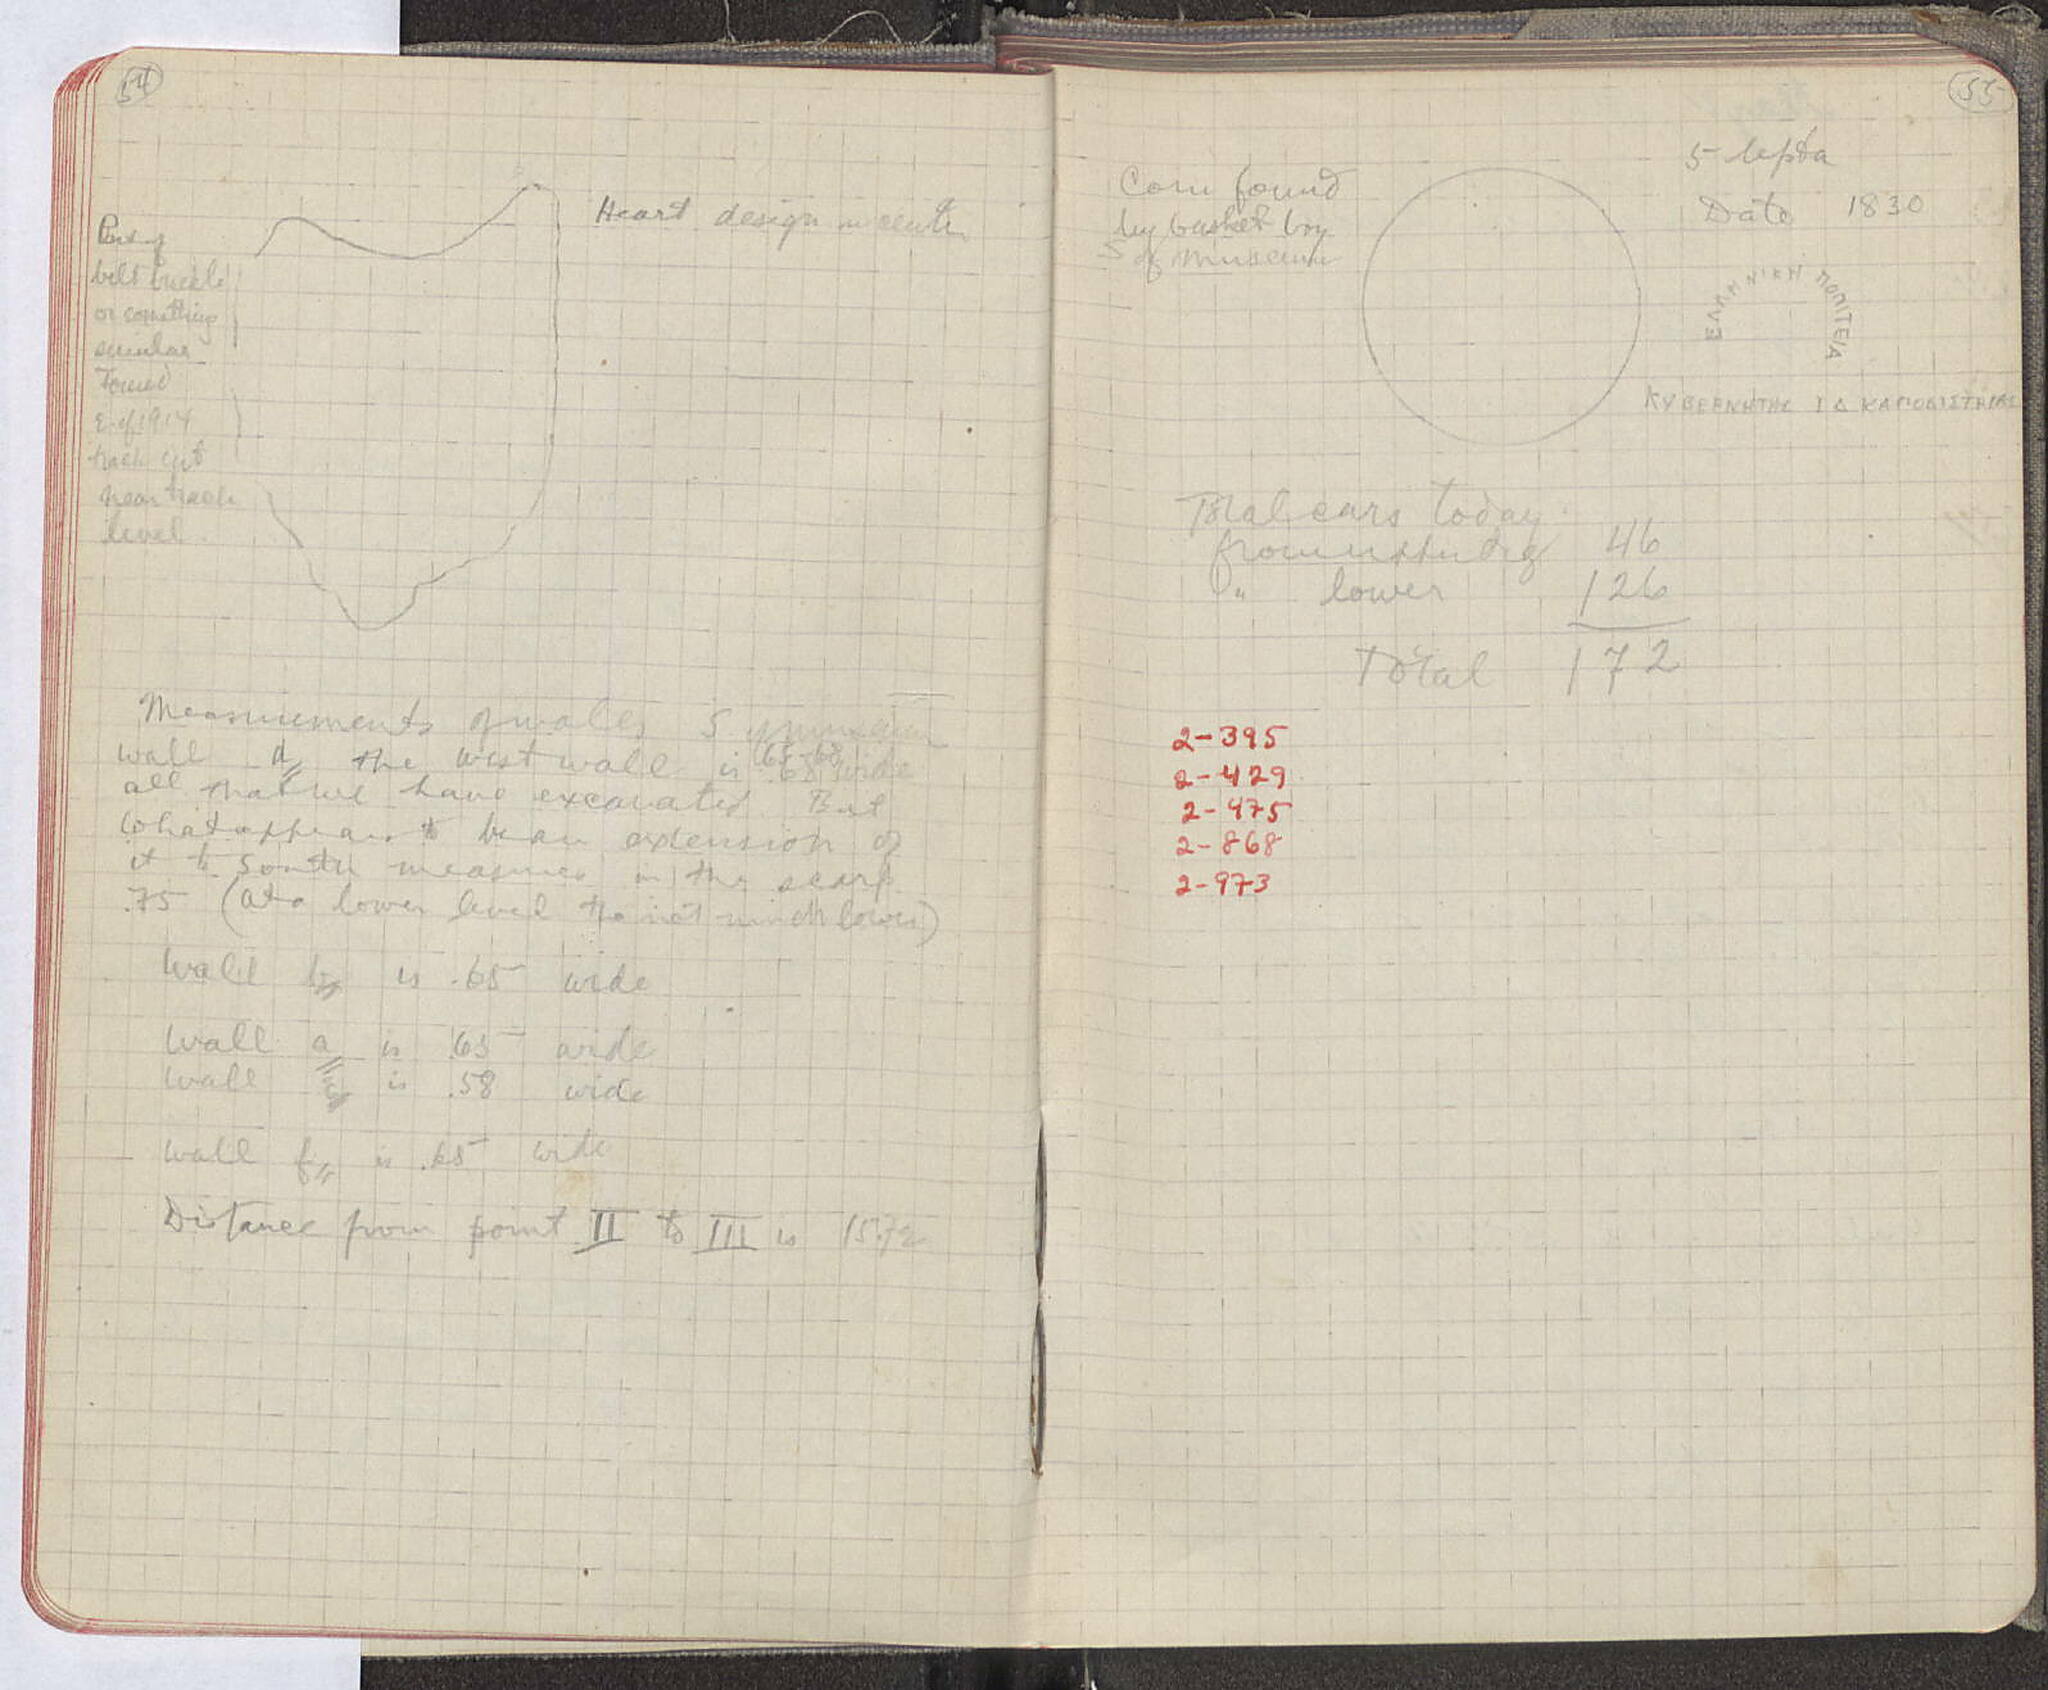 54
Heart design in center
Part of
belt buckle
or something
similar
Found
E. of 1914
trench cut
near track
level.
Measurements of walls S of museum
wall d the west wall is .68 (65-68) wide
all that we have excavated. But
what appears to be an extension of
it to south measures in the scarp
.75 (at a lower level tho not much lower)
Wall b is .65 wide
Wall a is .65 wide
wall is .58 wide
wall f is .65 wide
Distance from point II to III is 15.72
55
Coin found
by basket boy
S of museum
5 lepta
Date 1830
ΕΛΛΗΝΙΚΗ ΠΟΛΙΤΕΙΑ
ΚΥΒΕΡΝΗΤΗΣ Ι Α ΚΑΠΟΔΙΣΤΡΙΑΣ
Total cars today
from upper dig 46
" lower 126
Total 172
2-395
2-429
2-475
2-868
2-973